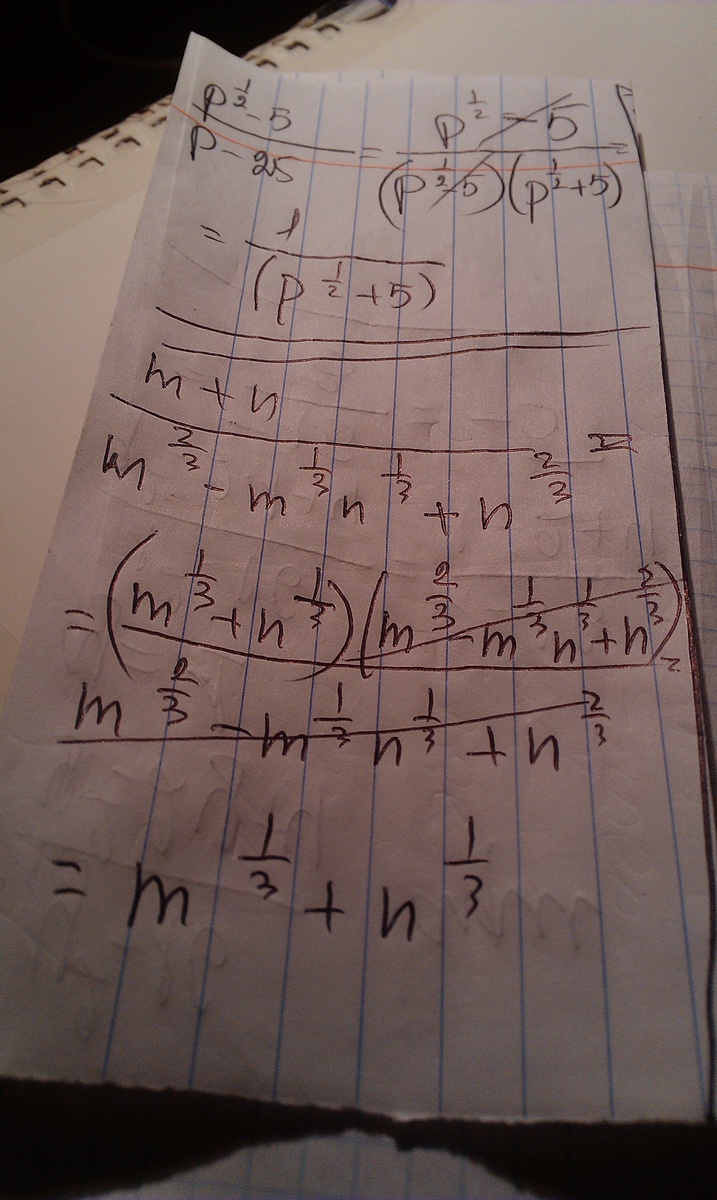 p^{1/2} - 5 / p - 25 = p^{1/2} - 5 / (p^{1/2} - 5)(p^{1/2} + 5) =
= 1 / (p^{1/2} + 5)
m + n / m^{2/3} - m^{1/3} n^{1/3} + n^{2/3} =
= (m^{1/3} + n^{1/3})(m^{2/3} - m^{1/3} n^{1/3} + n^{2/3}) / m^{2/3} - m^{1/3} n^{1/3} + n^{2/3} =
= m^{1/3} + n^{1/3}